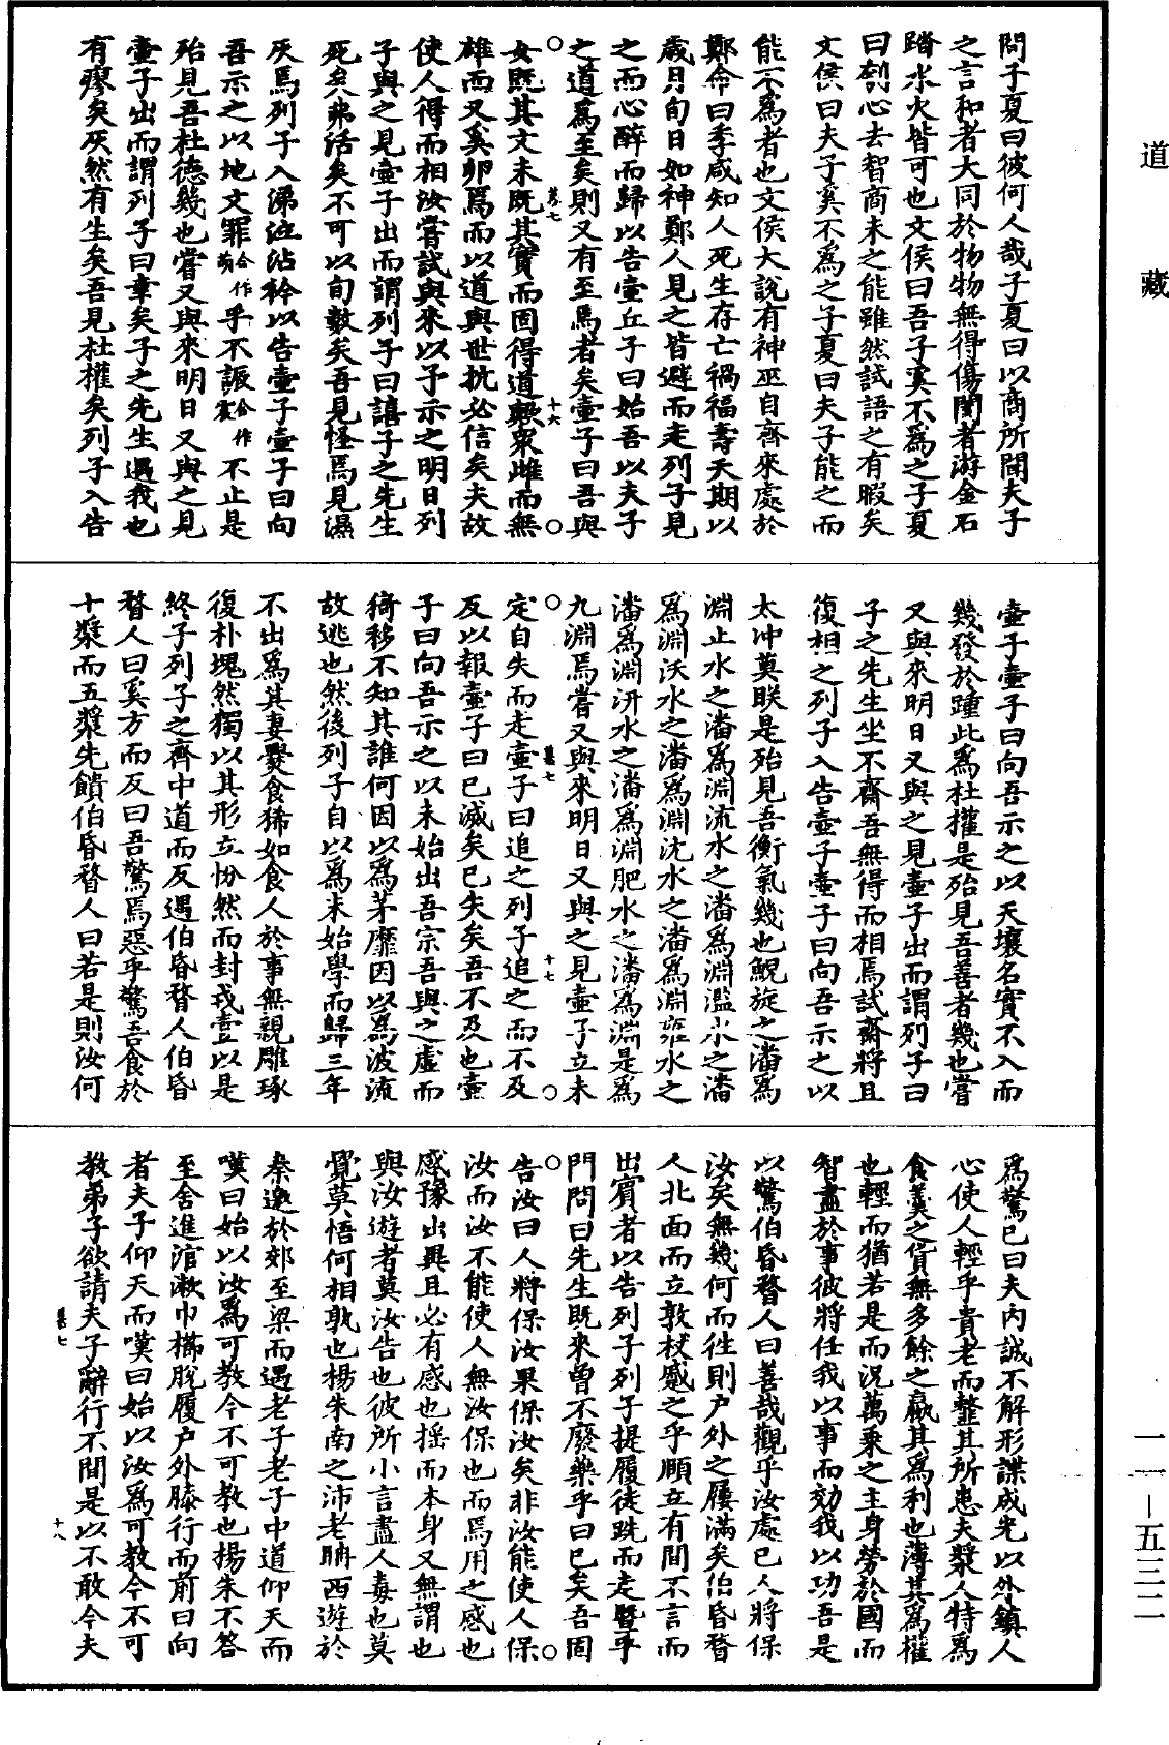 道藏
問子夏曰彼何人哉子夏曰以商所聞夫子
之言和者大同於物物無得傷閡者游金石
蹈水火皆可也文侯曰吾子奚不為之子夏
曰刳心去智商未之能雖然試語之有暇矣
文侯曰夫子奚不為之子夏曰夫子能之而
能不為者也文侯大說有神巫自齊來處於
鄭命曰季咸知人死生存亡禍福壽夭期以
歲月旬日如神鄭人見之皆避而走列子見
之而心醉而歸以告壺丘子曰始吾以夫子
之道為至矣則又有至焉者矣壺子曰吾與
○ 卷七 十六 ○
女既其文未既其實而固得道歟衆雌而無
雄而又奚卵焉而以道與世抗必信矣夫故
使人得而相汝嘗試與來以予示之明日列
子與之見壺子出而謂列子曰譆子之先生
死矣弗活矣不可以旬數矣吾見怪焉見濕
灰焉列子入涕泣沾衿以告壺子壺子曰向
吾示之以地文罪合作萌乎不誫合作震不止是
殆見吾杜德幾也嘗又與來明日又與之見
壺子出而謂列子曰幸矣子之先生遇我也
有瘳矣灰然有生矣吾見杜權矣列子入告
壺子壺子曰向吾示之以天壤名實不入而
幾發於踵此為杜權是殆見吾善者幾也嘗
又與來明日又與之見壺子出而謂列子曰
子之先生坐不齋吾無得而相焉試齋將且
復相之列子入告壺子壺子曰向吾示之以
太沖莫眹是殆見吾衡氣幾也鯢旋之潘為
淵止水之潘為淵流水之潘為淵濫水之潘
為淵沃水之潘為淵氿水之潘為淵雍水之
潘為淵汧水之潘為淵肥水之潘為淵是為
九淵焉嘗又與來明日又與之見壺子立未
○ 卷七 十七 ○
定自失而走壺子曰追之列子追之而不及
反以報壺子曰已滅矣已失矣吾不及也壺
子曰向吾示之以未始出吾宗吾與之虛而
猗移不知其誰何因以為茅靡因以為波流
故逃也然後列子自以為未始學而歸三年
不出為其妻爨食狶如食人於事無親雕琢
復朴塊然獨以其形立㤋然而封戎壹以是
終子列子之齊中道而反遇伯昏瞀人伯昏
瞀人曰奚方而反曰吾驚焉惡乎驚吾食於
十漿而五漿先饋伯昏瞀人曰若是則汝何
為驚已曰夫內誠不解形諜成光以外鎮人
心使人輕乎貴老而𩐋其所患夫漿人特為
食羹之貨無多餘之贏其為利也薄其為權
也輕而猶若是而況萬乘之主身勞於國而
智盡於事彼將任我以事而効我以功吾是
以驚伯昏瞀人曰善哉觀乎汝處已人將保
汝矣無幾何而往則戶外之屨滿矣伯昏瞀
人北面而立敦杖蹙之乎頤立有間不言而
出賓者以告列子列子提履徒跣而走曁乎
門問曰先生既來曾不廢藥乎曰已矣吾固
○ ○
告汝曰人將保汝果保汝矣非汝能使人保
汝而汝不能使人無汝保也而焉用之感也
感豫出異且必有感也搖而本身又無謂也
與汝遊者莫汝告也彼所小言盡人毒也莫
覺莫悟何相孰也楊朱南之沛老聃西遊於
秦邀於郊至梁而遇老子老子中道仰天而
嘆曰始以汝為可教今不可教也楊朱不答
至舍進涫漱巾櫛脫履戶外膝行而前曰向
者夫子仰天而嘆曰始以汝為可教今不可
教弟子欲請夫子辭行不間是以不敢今夫
卷七 十八
一一—五三二